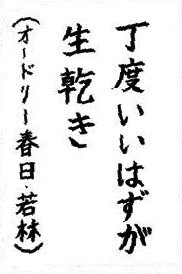 丁度いいはずが
生乾き
(オードリー春日・若林)